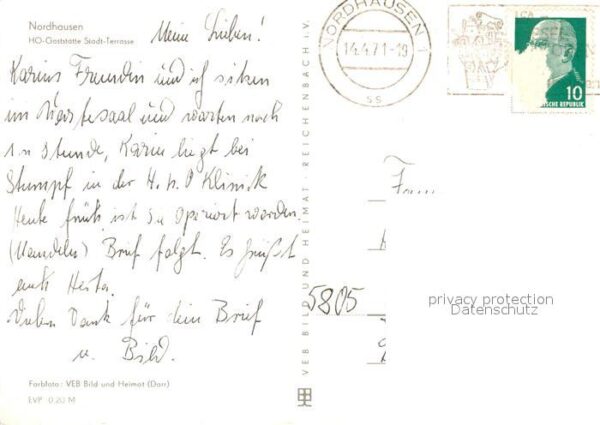 Nordhausen
HO-Gaststätte Stadt-Terrasse
Meine Lieben!
Karins Freundin und ich sitzen
im Wartesaal und warten noch
1 n Stunde, Karin liegt bei
Stumpf in der H.N.O Klinik
Heute früh ist sie operiert worden.
(Mandeln) Brief folgt. Es grüßt
euch Herta.
Vielen Dank für dein Brief
u. Bild.
Farbfoto: VEB Bild und Heimat (Darr)
EVP 0.20 M
VEB BILD UND HEIMAT · REICHENBACH i. V.
NORDHAUSEN 1
14.4.71-19
ss
10
DEUTSCHE REPUBLIK
5805
privacy protection
Datenschutz